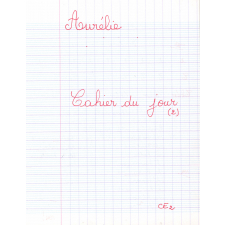 Aurélie
Cahier du jour
(2)
CE2